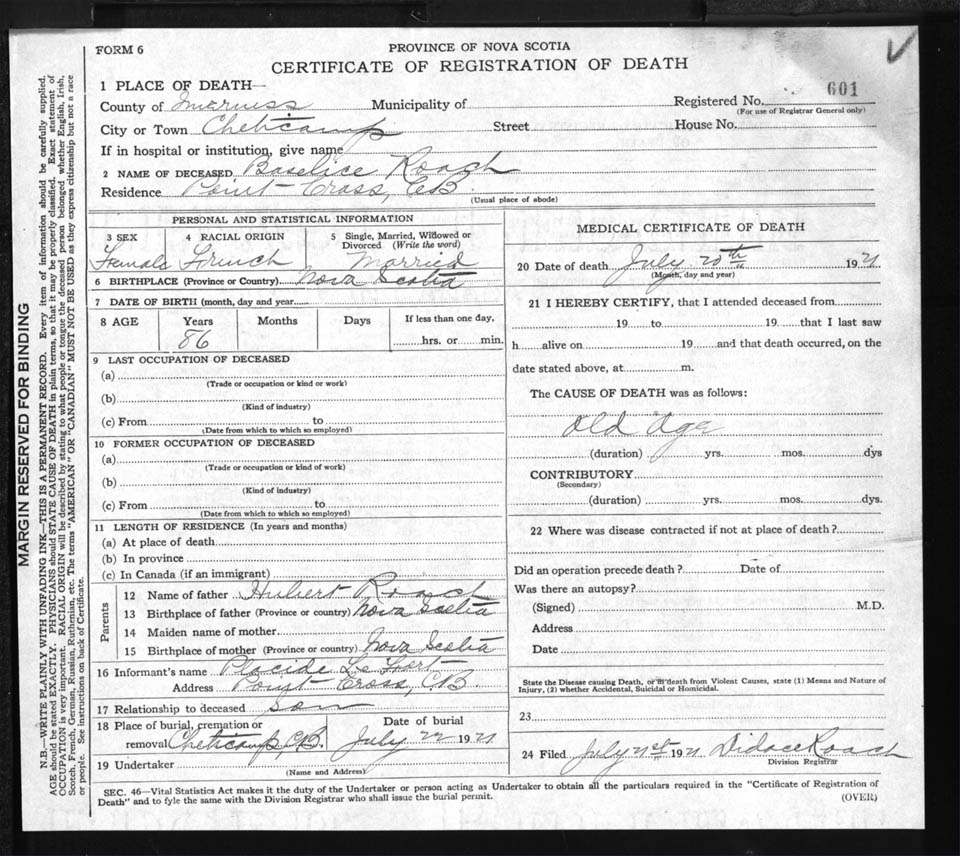 FORM 6
PROVINCE OF NOVA SCOTIA
CERTIFICATE OF REGISTRATION OF DEATH
1 PLACE OF DEATH—
County of Inverness Municipality of Registered No. 601
(For use of Registrar General only)
City or Town Cheticamp Street House No.
If in hospital or institution, give name
2 NAME OF DECEASED Baselice Roach
Residence Point Cross, CB
(Usual place of abode)
PERSONAL AND STATISTICAL INFORMATION
3 SEX 4 RACIAL ORIGIN 5 Single, Married, Widowed or Divorced (Write the word)
Female French Married
6 BIRTHPLACE (Province or Country) Nova Scotia
7 DATE OF BIRTH (month, day and year)
8 AGE Years Months Days If less than one day,
86 hrs. or min.
9 LAST OCCUPATION OF DECEASED
(a)
(Trade or occupation or kind or work)
(b)
(Kind of industry)
(c) From to
(Date from which to which so employed)
10 FORMER OCCUPATION OF DECEASED
(a)
(Trade or occupation or kind of work)
(b)
(Kind of industry)
(c) From to
(Date from which to which so employed)
11 LENGTH OF RESIDENCE (In years and months)
(a) At place of death
(b) In province
(c) In Canada (if an immigrant)
Parents
12 Name of father Hubert Roach
13 Birthplace of father (Province or country) Nova Scotia
14 Maiden name of mother
15 Birthplace of mother (Province or country) Nova Scotia
16 Informant's name Placide Le Fort
Address Point Cross, C.B
17 Relationship to deceased son
18 Place of burial, cremation or Date of burial
removal Cheticamp, C.B. July 22 19
19 Undertaker
(Name and Address)
MEDICAL CERTIFICATE OF DEATH
20 Date of death July 20th 19
(Month, day and year)
21 I HEREBY CERTIFY, that I attended deceased from
19 to 19 that I last saw
h alive on 19 and that death occurred, on the
date stated above, at m.
The CAUSE OF DEATH was as follows:
Old Age
(duration) yrs. mos. dys
CONTRIBUTORY
(Secondary)
(duration) yrs. mos. dys.
22 Where was disease contracted if not at place of death?
Did an operation precede death? Date of
Was there an autopsy?
(Signed) M.D.
Address
Date
State the Disease causing Death, or in death from Violent Causes, state (1) Means and Nature of
Injury, (2) whether Accidental, Suicidal or Homicidal.
23
24 Filed July 19 Didace Roach
Division Registrar
SEC. 46—Vital Statistics Act makes it the duty of the Undertaker or person acting as Undertaker to obtain all the particulars required in the "Certificate of Registration of
Death" and to fyle the same with the Division Registrar who shall issue the burial permit. (OVER)
MARGIN RESERVED FOR BINDING
N.B.—WRITE PLAINLY WITH UNFADING INK—THIS IS A PERMANENT RECORD. Every item of information should be carefully supplied.
AGE should be stated EXACTLY. PHYSICIANS should STATE CAUSE OF DEATH in plain terms, so that it may be properly classified. Exact statement of
OCCUPATION is very important. RACIAL ORIGIN will be described by stating to what people or tongue the deceased person belonged whether English, Irish,
Scotch, French, German, Russian, Ruthenian, etc. The terms "AMERICAN" OR "CANADIAN" MUST NOT BE USED as they express citizenship but not a race
or people. See instructions on back of Certificate.